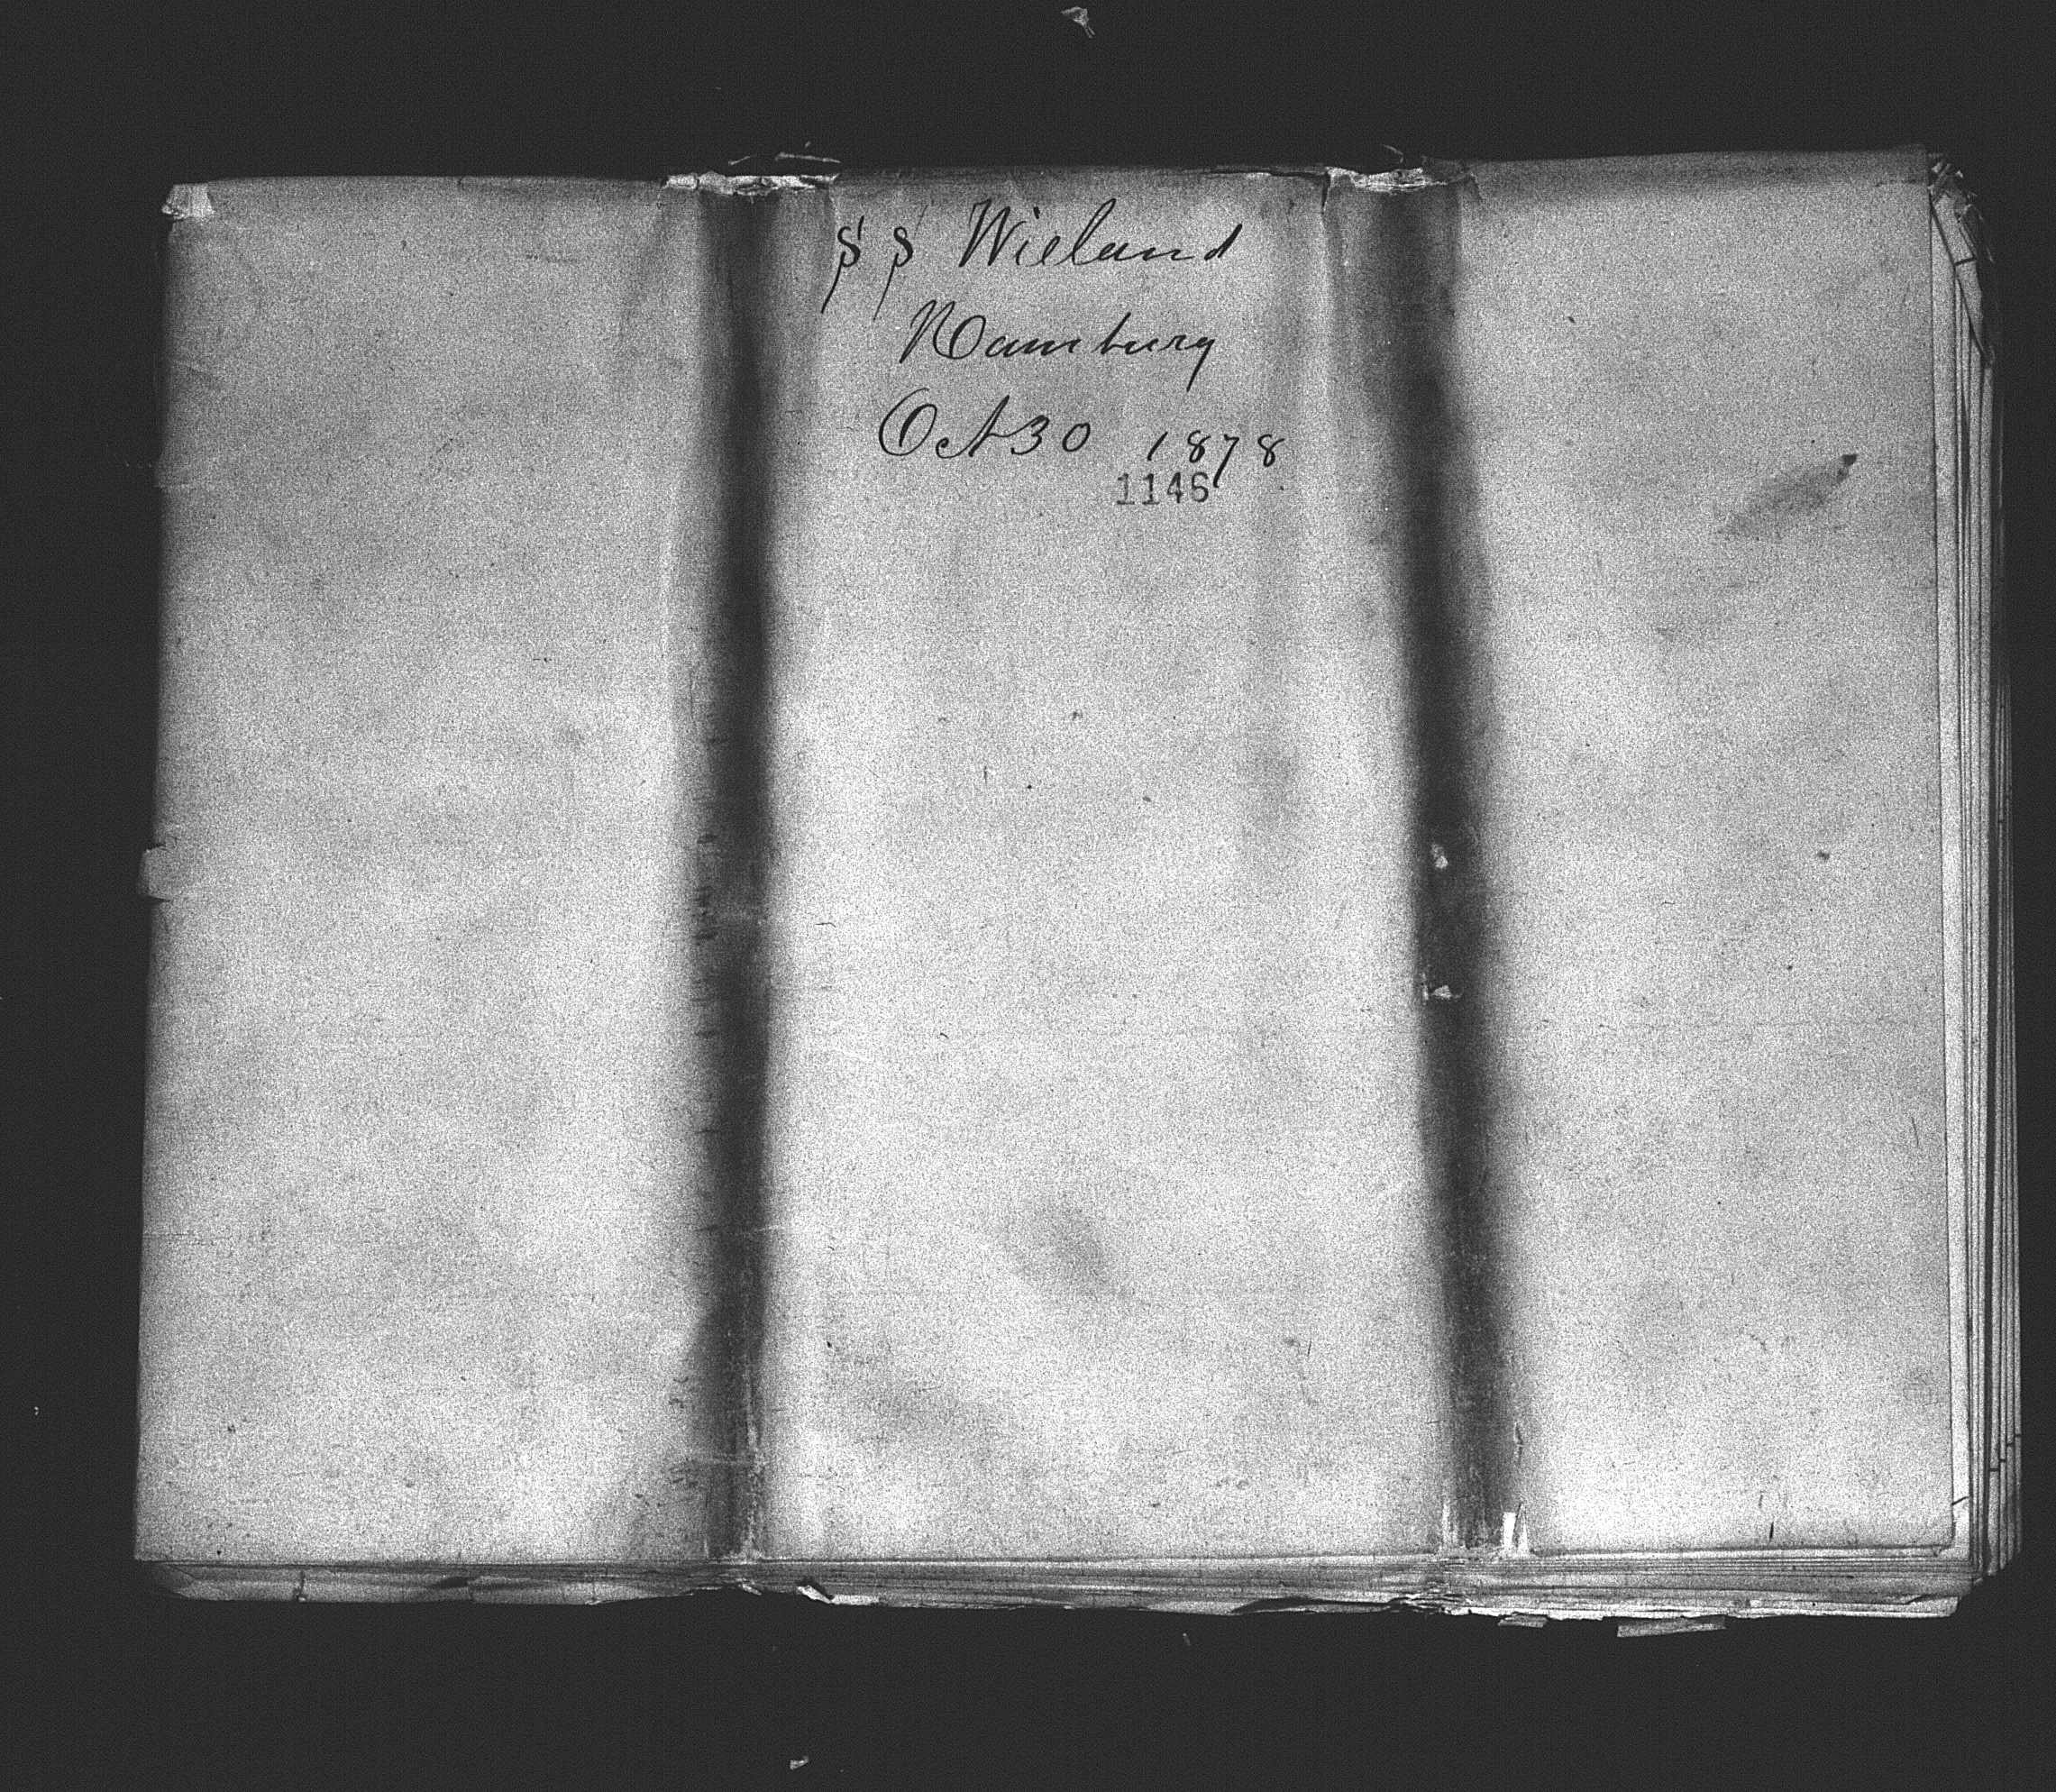 SS Wieland
Hamburg
Oct 30 1878
1146